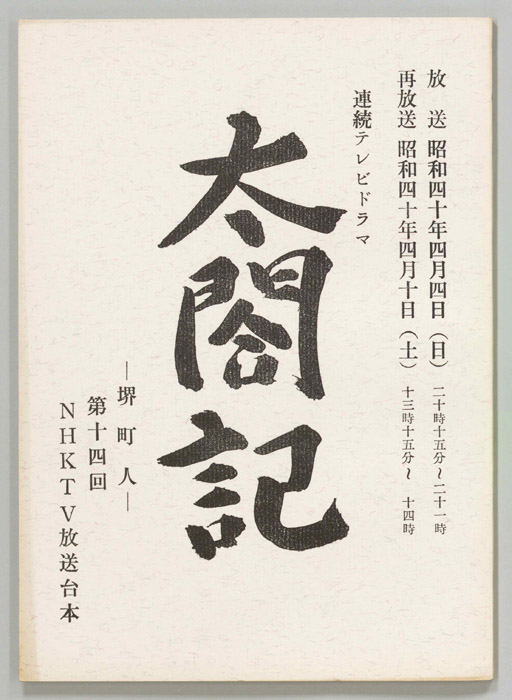 放　送　昭和四十年四月四日（日）　二十時十五分～二十一時
再放送　昭和四十年四月十日（土）　十三時十五分～　十四時
連続テレビドラマ
太閤記
―堺町人―
第十四回
NHKTV放送台本